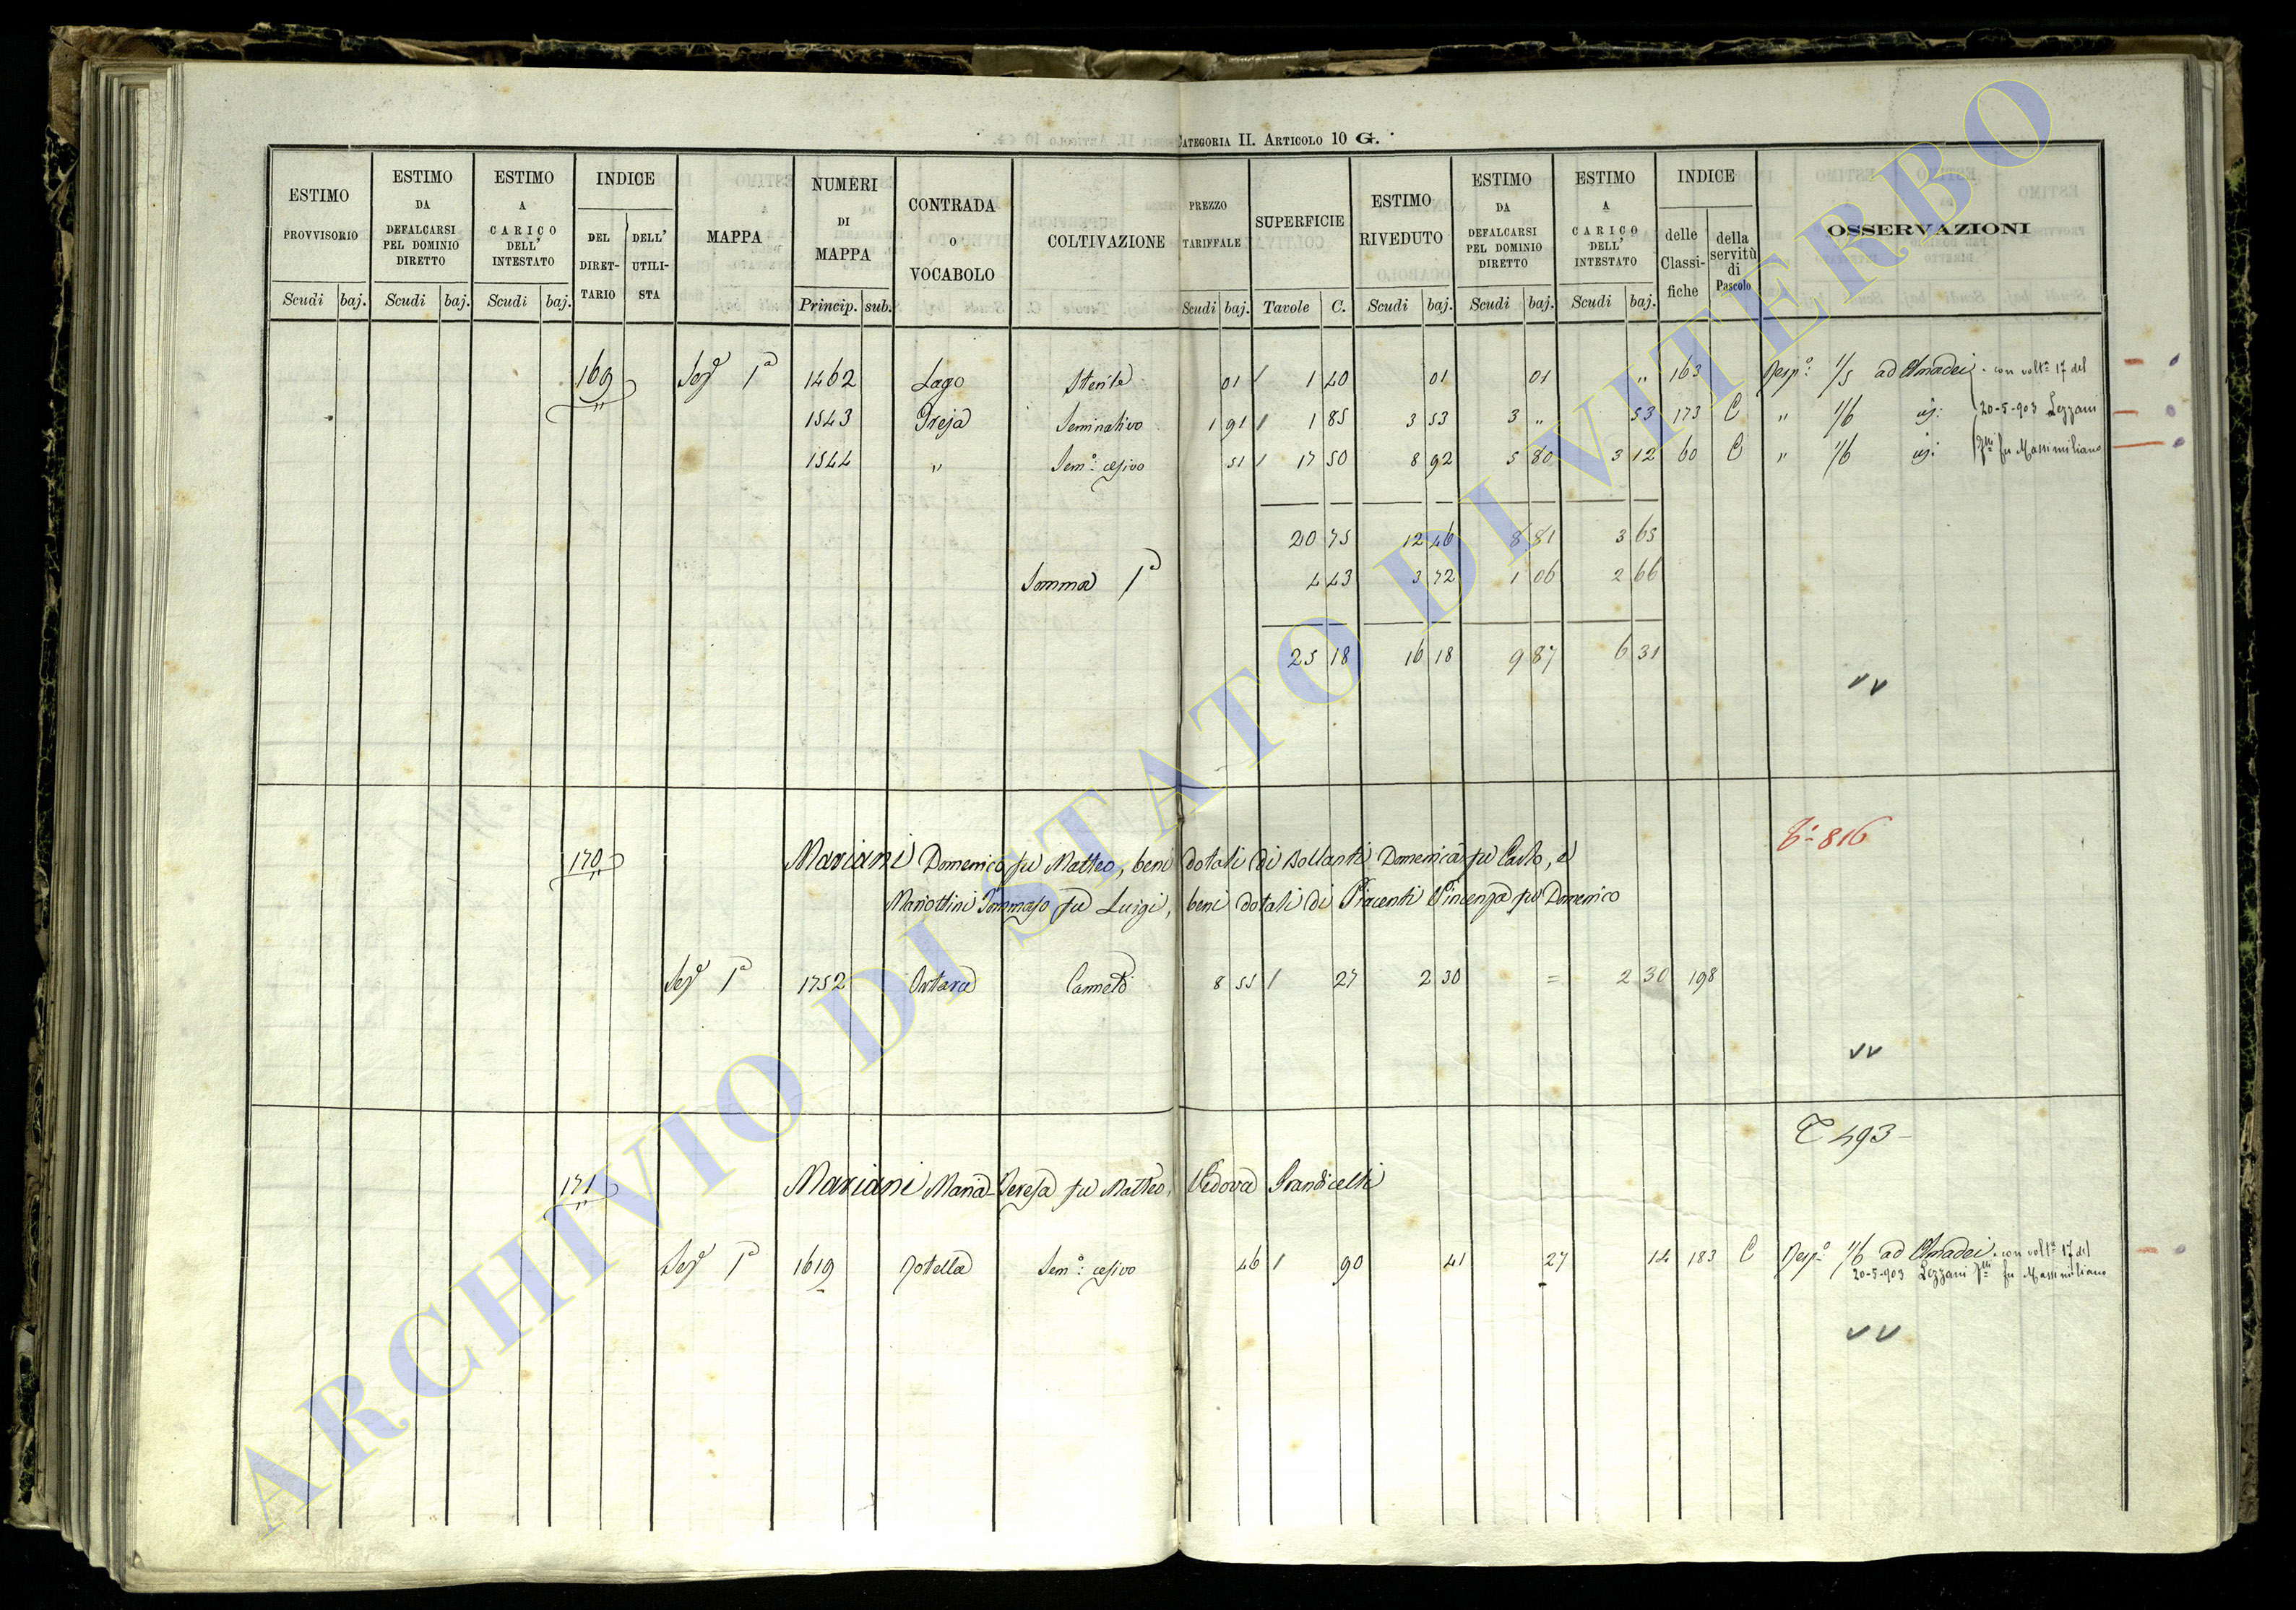 CATEGORIA II. ARTICOLO 10 G.
ESTIMO PROVVISORIO Scudi baj.
ESTIMO DA DEFALCARSI PEL DOMINIO DIRETTO Scudi baj.
ESTIMO A CARICO DELL' INTESTATO Scudi baj.
INDICE DEL DIRETTARIO DELL' UTILISTA
MAPPA
NUMERI DI MAPPA Princip. sub.
CONTRADA O VOCABOLO
COLTIVAZIONE
PREZZO TARIFFALE Scudi baj.
SUPERFICIE Tavole C.
ESTIMO RIVEDUTO Scudi baj.
ESTIMO DA DEFALCARSI PEL DOMINIO DIRETTO Scudi baj.
ESTIMO A CARICO DELL' INTESTATO Scudi baj.
INDICE delle Classifiche della servitù di Pascolo
OSSERVAZIONI
169 Sez.e 1a 1462 Lago Sterile 01 / 1 40 01 01 " 163 Resp.o 1/5 ad Amadei con volt.a 17 del
1543 Treja Seminativo 1 91 / 1 85 3 53 3 " 53 173 C " 1/6 20-5-903 Lezzani
1544 " Sem.o cesivo 51 / 17 50 8 92 5 80 3 12 60 C " 1/6 fu Massimiliano
20 75 12 46 8 81 3 65
Somma 1a 4 43 3 72 1 06 2 66
25 18 16 18 9 87 6 31
vv
816
170 Mariani Domenico fu Matteo, beni dotali di Bollanti Domenica fu Carlo, e
Mariottini Tommaso fu Luigi, beni dotali di Piacenti Vincenza fu Domenico
Sez.e 1a 1752 Ortara Canneto 8 55 / 27 2 30 = 2 30 198
vv
T 493-
171 Mariani Maria-Teresa fu Matteo, Vedova Grandicelli
Sez.e 1a 1619 Sem.o cesivo 46 / 90 41 27 14 183 C Resp.o 1/6 ad Amadei con volt.a 17 del
20-5-903 Lezzani fu Massimiliano
vv
ARCHIVIO DI STATO DI VITERBO